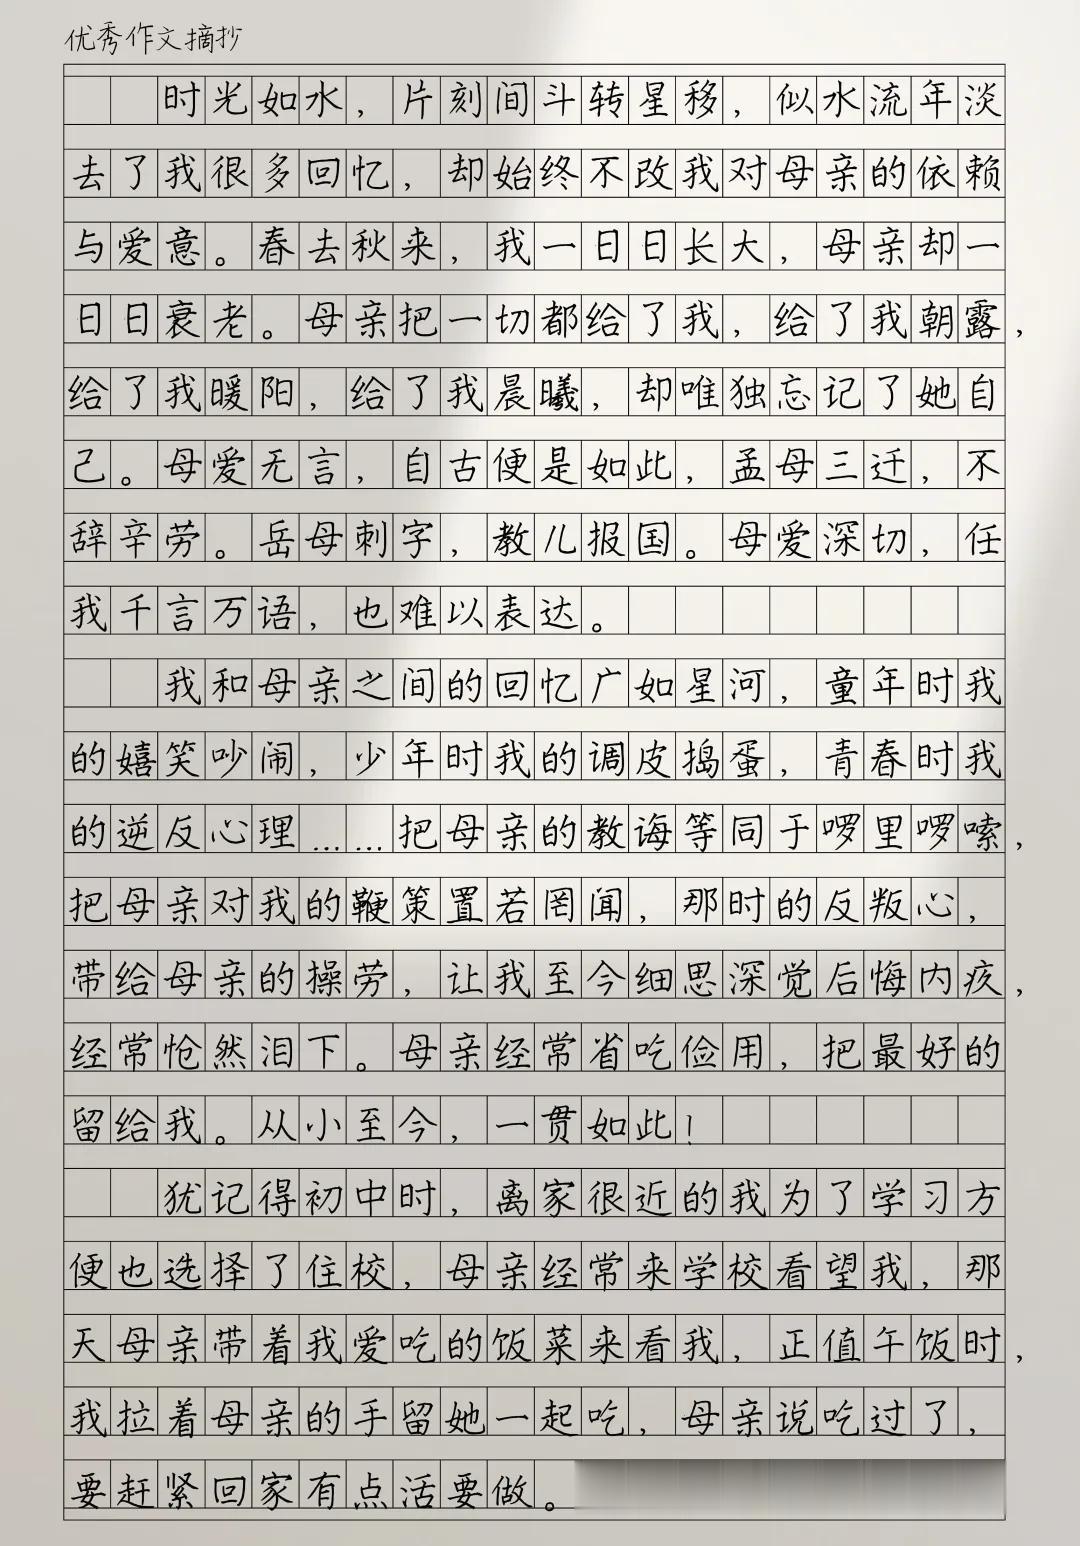 优秀作文摘抄
时光如水，片刻间斗转星移，似水流年淡
去了我很多回忆，却始终不改我对母亲的依赖
与爱意。春去秋来，我一日日长大，母亲却一
日日衰老。母亲把一切都给了我，给了我朝露，
给了我暖阳，给了我晨曦，却唯独忘记了她自
己。母爱无言，自古便是如此，孟母三迁，不
辞辛劳。岳母刺字，教儿报国。母爱深切，任
我千言万语，也难以表达。
我和母亲之间的回忆广如星河，童年时我
的嬉笑吵闹，少年时我的调皮捣蛋，青春时我
的逆反心理……把母亲的教诲等同于啰里啰嗦，
把母亲对我的鞭策置若罔闻，那时的反叛心，
带给母亲的操劳，让我至今细思深觉后悔内疚，
经常怆然泪下。母亲经常省吃俭用，把最好的
留给我。从小至今，一贯如此！
犹记得初中时，离家很近的我为了学习方
便也选择了住校，母亲经常来学校看望我，那
天母亲带着我爱吃的饭菜来看我，正值午饭时，
我拉着母亲的手留她一起吃，母亲说吃过了，
要赶紧回家有点活要做。